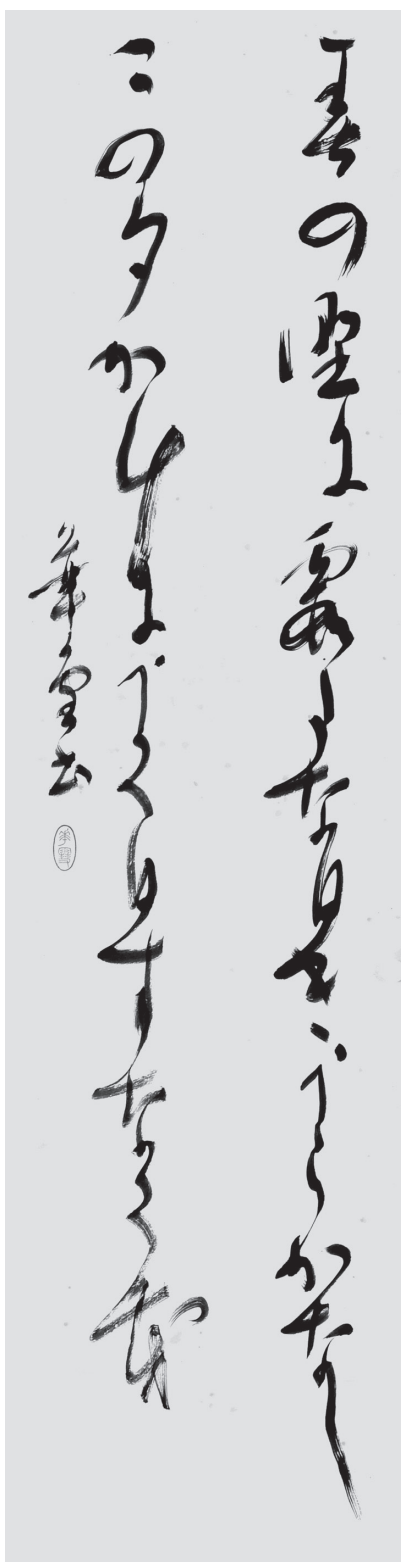 春の野に霞たなひきうらかなし
この夕かけにうくひすなくも
書